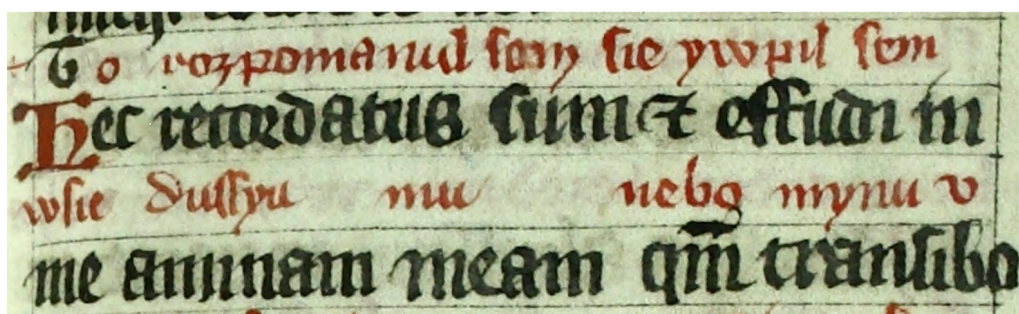 To rozpomanul sem sie ywopil sem
Hec recordatus sum ⁊ effudi in
wsie dussyu mu nebo mynu v
me animam meam qm̄ transibo